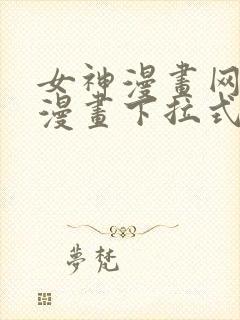 女神漫畫网
漫畫下拉式
夢梵